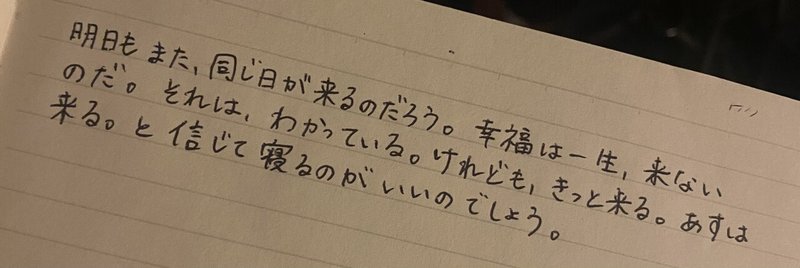 明日もまた、同じ日が来るのだろう。幸福は一生、来ない
のだ。それは、わかっている。けれども、きっと来る。あすは
来る。と信じて寝るのがいいのでしょう。